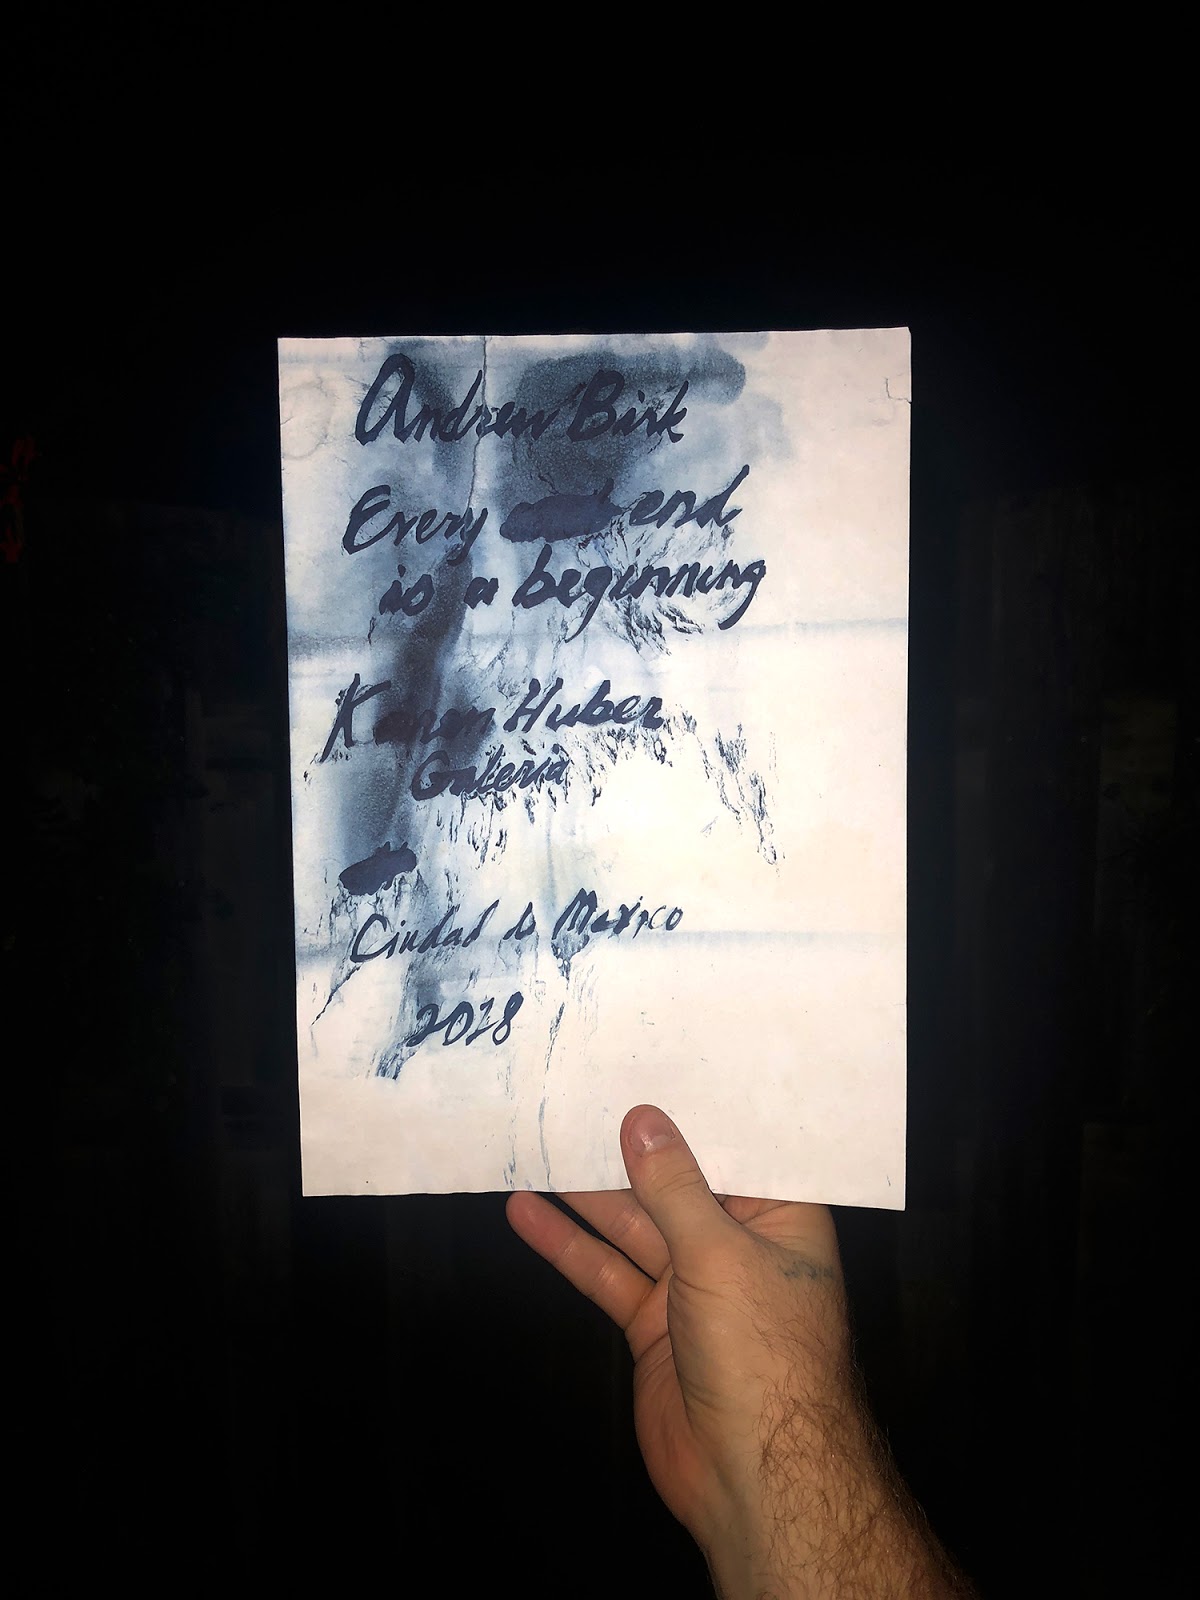 Andrew Birk
Every end
is a beginning
Karen Huber
Galería
Ciudad de Mexico
2018